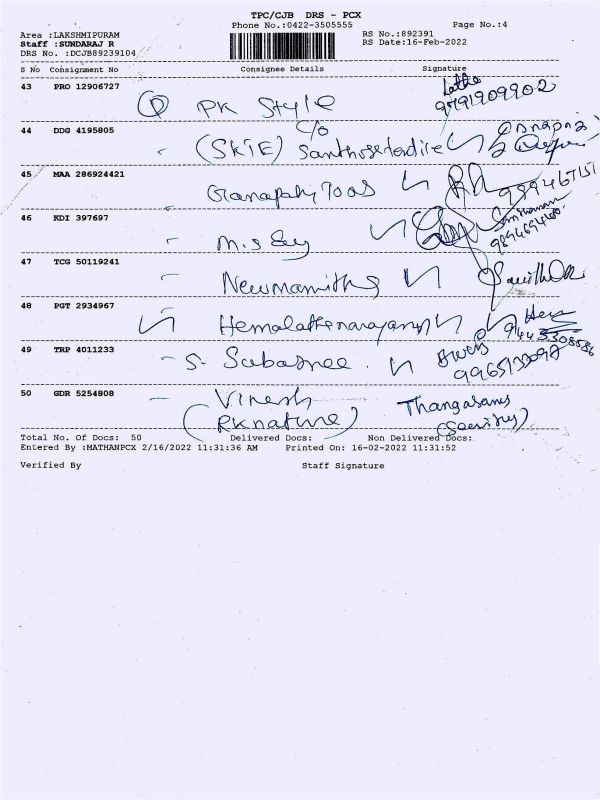 TPC/CJB DRS - PCX
Phone No.:0422-3505555 Page No.:4
Area :LAKSHMIPURAM RS No.:892391
Staff :SUNDARAJ R RS Date:16-Feb-2022
DRS No. :DCJB89239104
S No Consignment No Consignee Details Signature
43 PRO 12906727 Latha
PK Style 9791909902
44 DDG 4195805 C/o
(SKTE)
45 MAA 286924421
Ganapathy Toos
46 KDI 397697
M.S
47 TCG 50119241
Newmamitha
48 PGT 2934967
Hemalathanarayanan
49 TRP 4011233
S. Subasree
50 GDR 5254808 Vinesh Thangasamy
(RK nature) (Security)
Total No. Of Docs: 50 Delivered Docs: Non Delivered Docs:
Entered By :MATHANPCX 2/16/2022 11:31:36 AM Printed On: 16-02-2022 11:31:52
Verified By Staff Signature